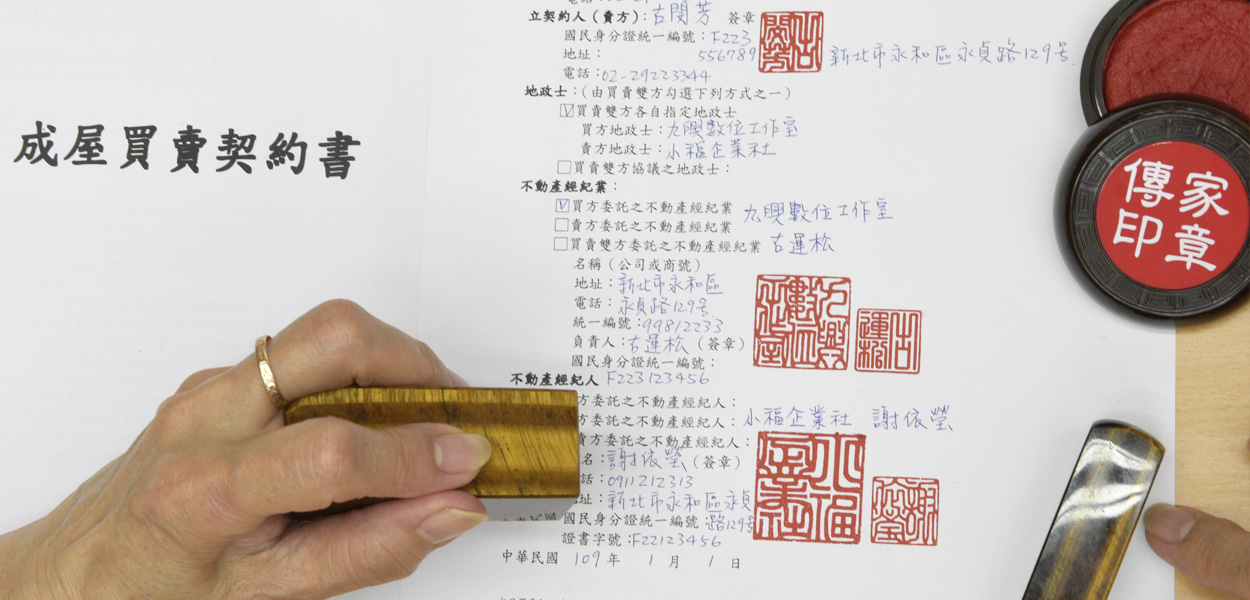 成屋買賣契約書
立契約人（賣方）：古閔芳 簽章
國民身分證統一編號：F223
556789
地址： 新北市永和區永貞路129号
電話：02-29223344
地政士：（由買賣雙方勾選下列方式之一）
☑買賣雙方各自指定地政士
買方地政士：九興數位工作室
賣方地政士：小福企業社
□買賣雙方協議之地政士：
不動產經紀業：
☑買方委託之不動產經紀業 九興數位工作室
□賣方委託之不動產經紀業
□買賣雙方委託之不動產經紀業 古運松
名稱（公司或商號）
地址：新北市永和區
電話：永貞路129号
統一編號：99812233
負責人：古運松（簽章）
國民身分證統一編號：
不動產經紀人 F223123456
方委託之不動產經紀人：
方委託之不動產經紀人：小福企業社 謝依瑩
賣方委託之不動產經紀人：
名：謝依瑩（簽章）
話：0911212313
址：新北市永和區永貞
國民身分證統一編號：路129号
證書字號：F22123456
中華民國 109 年 1 月 1 日
古閔芳
九興數位工作室
古運松
小福企業社
謝依瑩
家章
傳印